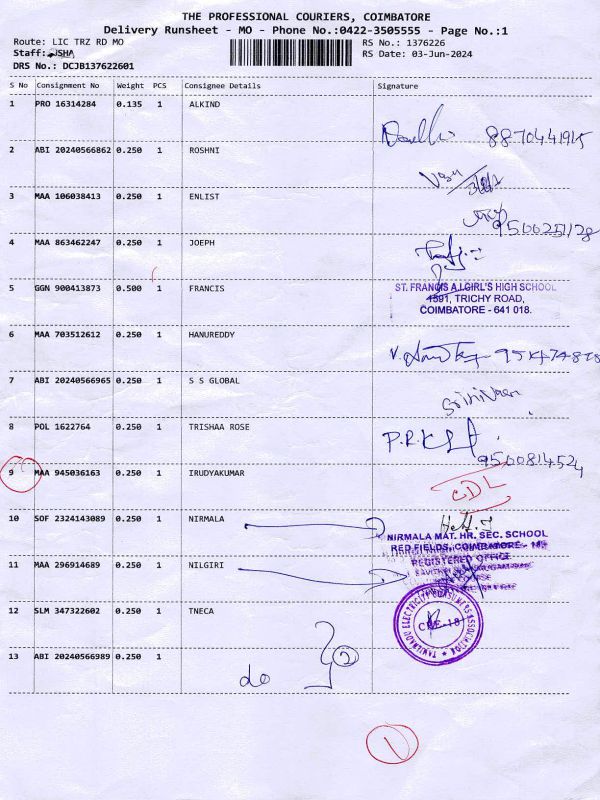 THE PROFESSIONAL COURIERS, COIMBATORE
Delivery Runsheet - MO - Phone No.:0422-3505555 - Page No.:1
Route: LIC TRZ RD MO RS No.: 1376226
Staff: USHA RS Date: 03-Jun-2024
DRS No.: DCJB137622601
S No Consignment No Weight PCS Consignee Details Signature
1 PRO 16314284 0.135 1 ALKIND
8870441915
2 ABI 20240566862 0.250 1 ROSHNI
3 MAA 106038413 0.250 1 ENLIST
9500251128
4 MAA 863462247 0.250 1 JOEPH
5 GGN 900413873 0.500 1 FRANCIS
ST. FRANCIS A.I.GIRL'S HIGH SCHOOL
1591, TRICHY ROAD,
COIMBATORE - 641 018.
6 MAA 703512612 0.250 1 HANUREDDY
7 ABI 20240566965 0.250 1 S S GLOBAL
8 POL 1622764 0.250 1 TRISHAA ROSE
9500814524
9 MAA 945036163 0.250 1 IRUDYAKUMAR
CDL
10 SOF 2324143089 0.250 1 NIRMALA
NIRMALA MAT. HR. SEC. SCHOOL
RED FIELDS, COIMBATORE - 18
REGISTERED OFFICE
11 MAA 296914689 0.250 1 NILGIRI
12 SLM 347322602 0.250 1 TNECA
TAMILNADU ELECTRICITY CONSUMERS ASSOCIATION
CBE-18
13 ABI 20240566989 0.250 1
do 2
1